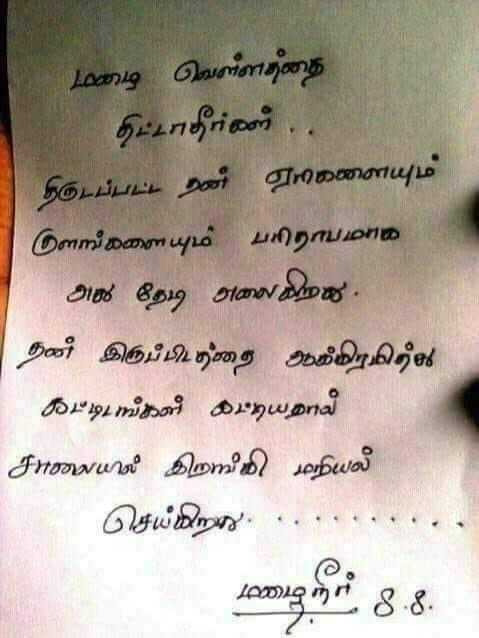 மழை வெள்ளத்தை
திட்டாதீர்கள் . .
திருடப்பட்ட தன் ஏரிகளையும்
குளங்களையும் பரிதாபமாக
அது தேடி அலைகிறது.
தன் இருப்பிடத்தை ஆக்கிரமித்து
கட்டிடங்கள் கட்டியதால்
சாலையில் இறங்கி மறியல்
செய்கிறது. . . . . . . . . . .
மழைநீர்